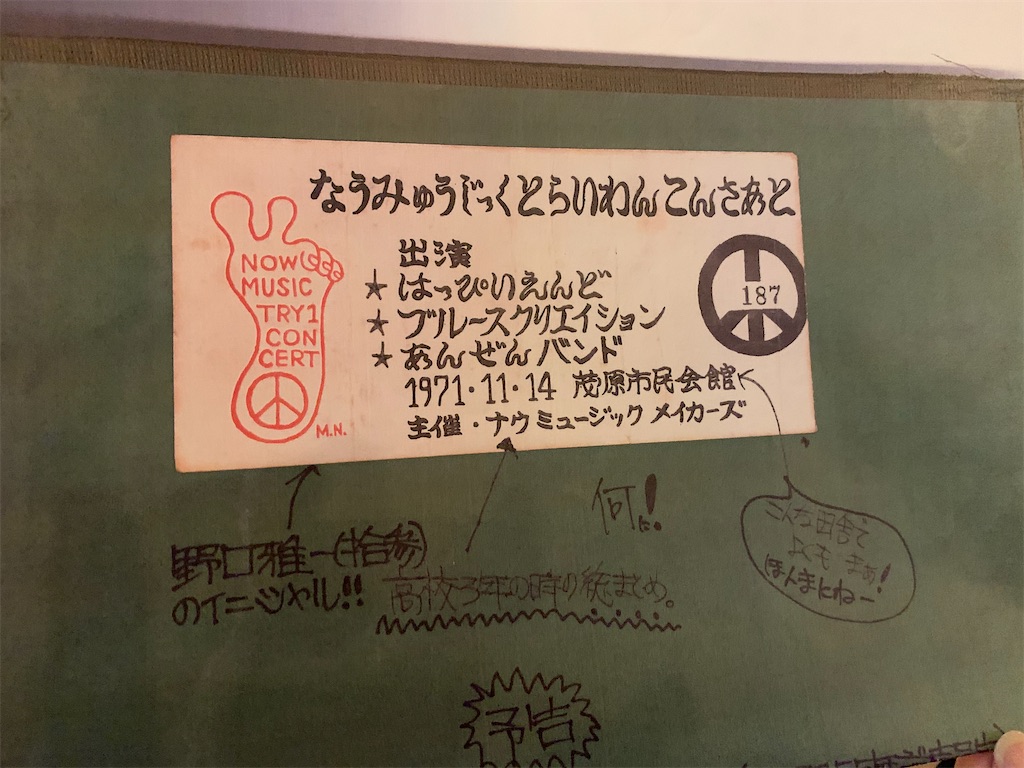 なうみゅうじっくとらいわんこんさあと
NOW
MUSIC
TRY1
CON
CERT
M.N.
出演
★はっぴいえんど
★ブルースクリエイション
★あんぜんバンド
1971・11・14 茂原市民会館
主催・ナウミュージックメイカーズ
187
何に!
野口雅一(拾参)
のイニシャル!!
高校3年の時の総まとめ。
こんな田舎で
よくも まぁ!
ほんまにねー
予告